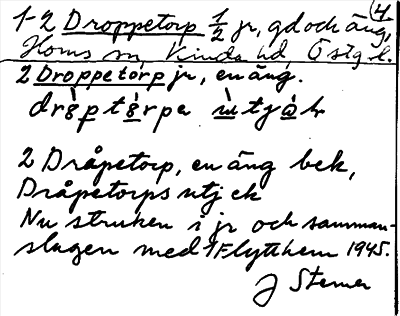 4.
1-2 Droppetorp 1/2 jr, gd och äng,
Horns sn, Kinda hd, Östg. l.
2 Droppetorp jr, en äng.
2 Dråpetorp, en äng bek,
Dråpetorps utj ek
Nu struken i jr och samman-
slagen med 1 Flyttkem 1945.
J Sterner